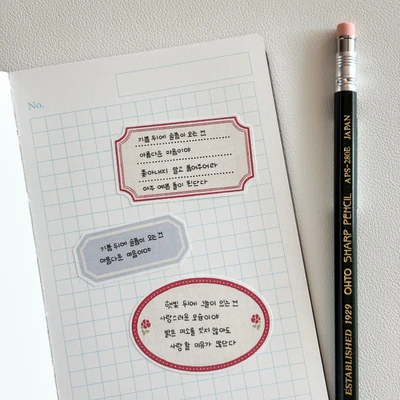 No.
기쁨 뒤에 슬픔이 오는 건
아름다운 마음이야
쫓아내지 말고 품어주어라
아주 예쁜 돌이 된단다
기쁨 뒤에 슬픔이 오는 건
아름다운 마음이야
햇빛 뒤에 그늘이 있는 건
사랑스러운 모습이야
밝은 미소를 짓지 않아도
사랑할 이유가 많단다
ESTABLISHED 1929 OHTO SHARP PENCIL APS-280E JAPAN